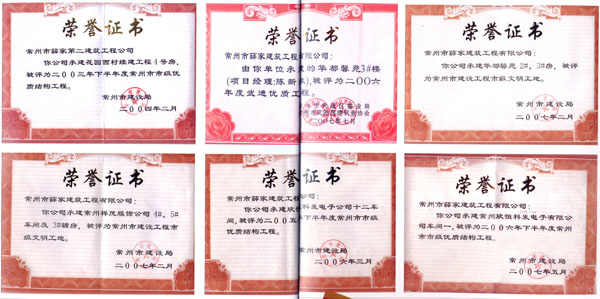 荣誉证书
常州市薛家第二建筑工程公司
你公司承建花园西村续建工程4号房,
被评为二00三年下半年度常州市市级优
质结构工程。
常州市建设局
二00四年二月
荣誉证书
常州市薛家建筑工程有限公司:
由你单位承建的华都馨苑3#楼
(项目经理:陈新
),被评为二00六
年度武进优质工程。
二00七年七月
荣誉证书
常州市薛家建筑工程有限公司:
你公司承建华都馨苑2#、3#房,被评
为常州市建设工程市级文明工地。
常州市建设局
二00七年二月
荣誉证书
常州市薛家建筑工程有限公司:
你公司承建常州祥茂服饰公司4#、5#
车间及3#辅房,被评为常州市建设工程市
级文明工地。
常州市建设局
二00七年二月
荣誉证书
常州市薛家建筑工程有限公司:
你公司承建欣
科发电子公司十二车
间,被评为二00五
下半年度常州市市级
优质结构工程。
常州市建设局
二00六年三月
荣誉证书
常州市薛家建筑工程有限公司:
你公司承建常州欣恒科发电子有限公
司车间一,被评为二00六年下半年度常州
市市级优质结构工程。
常州市建设局
二00七年五月